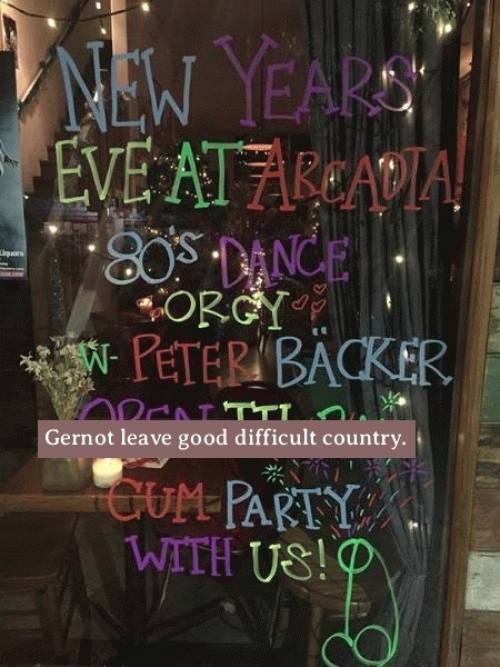 NEW YEARS
EVE AT ARCADIA!
80's DANCE
ORGY
W- PETER BÄCKER
OPEN TIL
Gernot leave good difficult country.
CUM PARTY
WITH US!